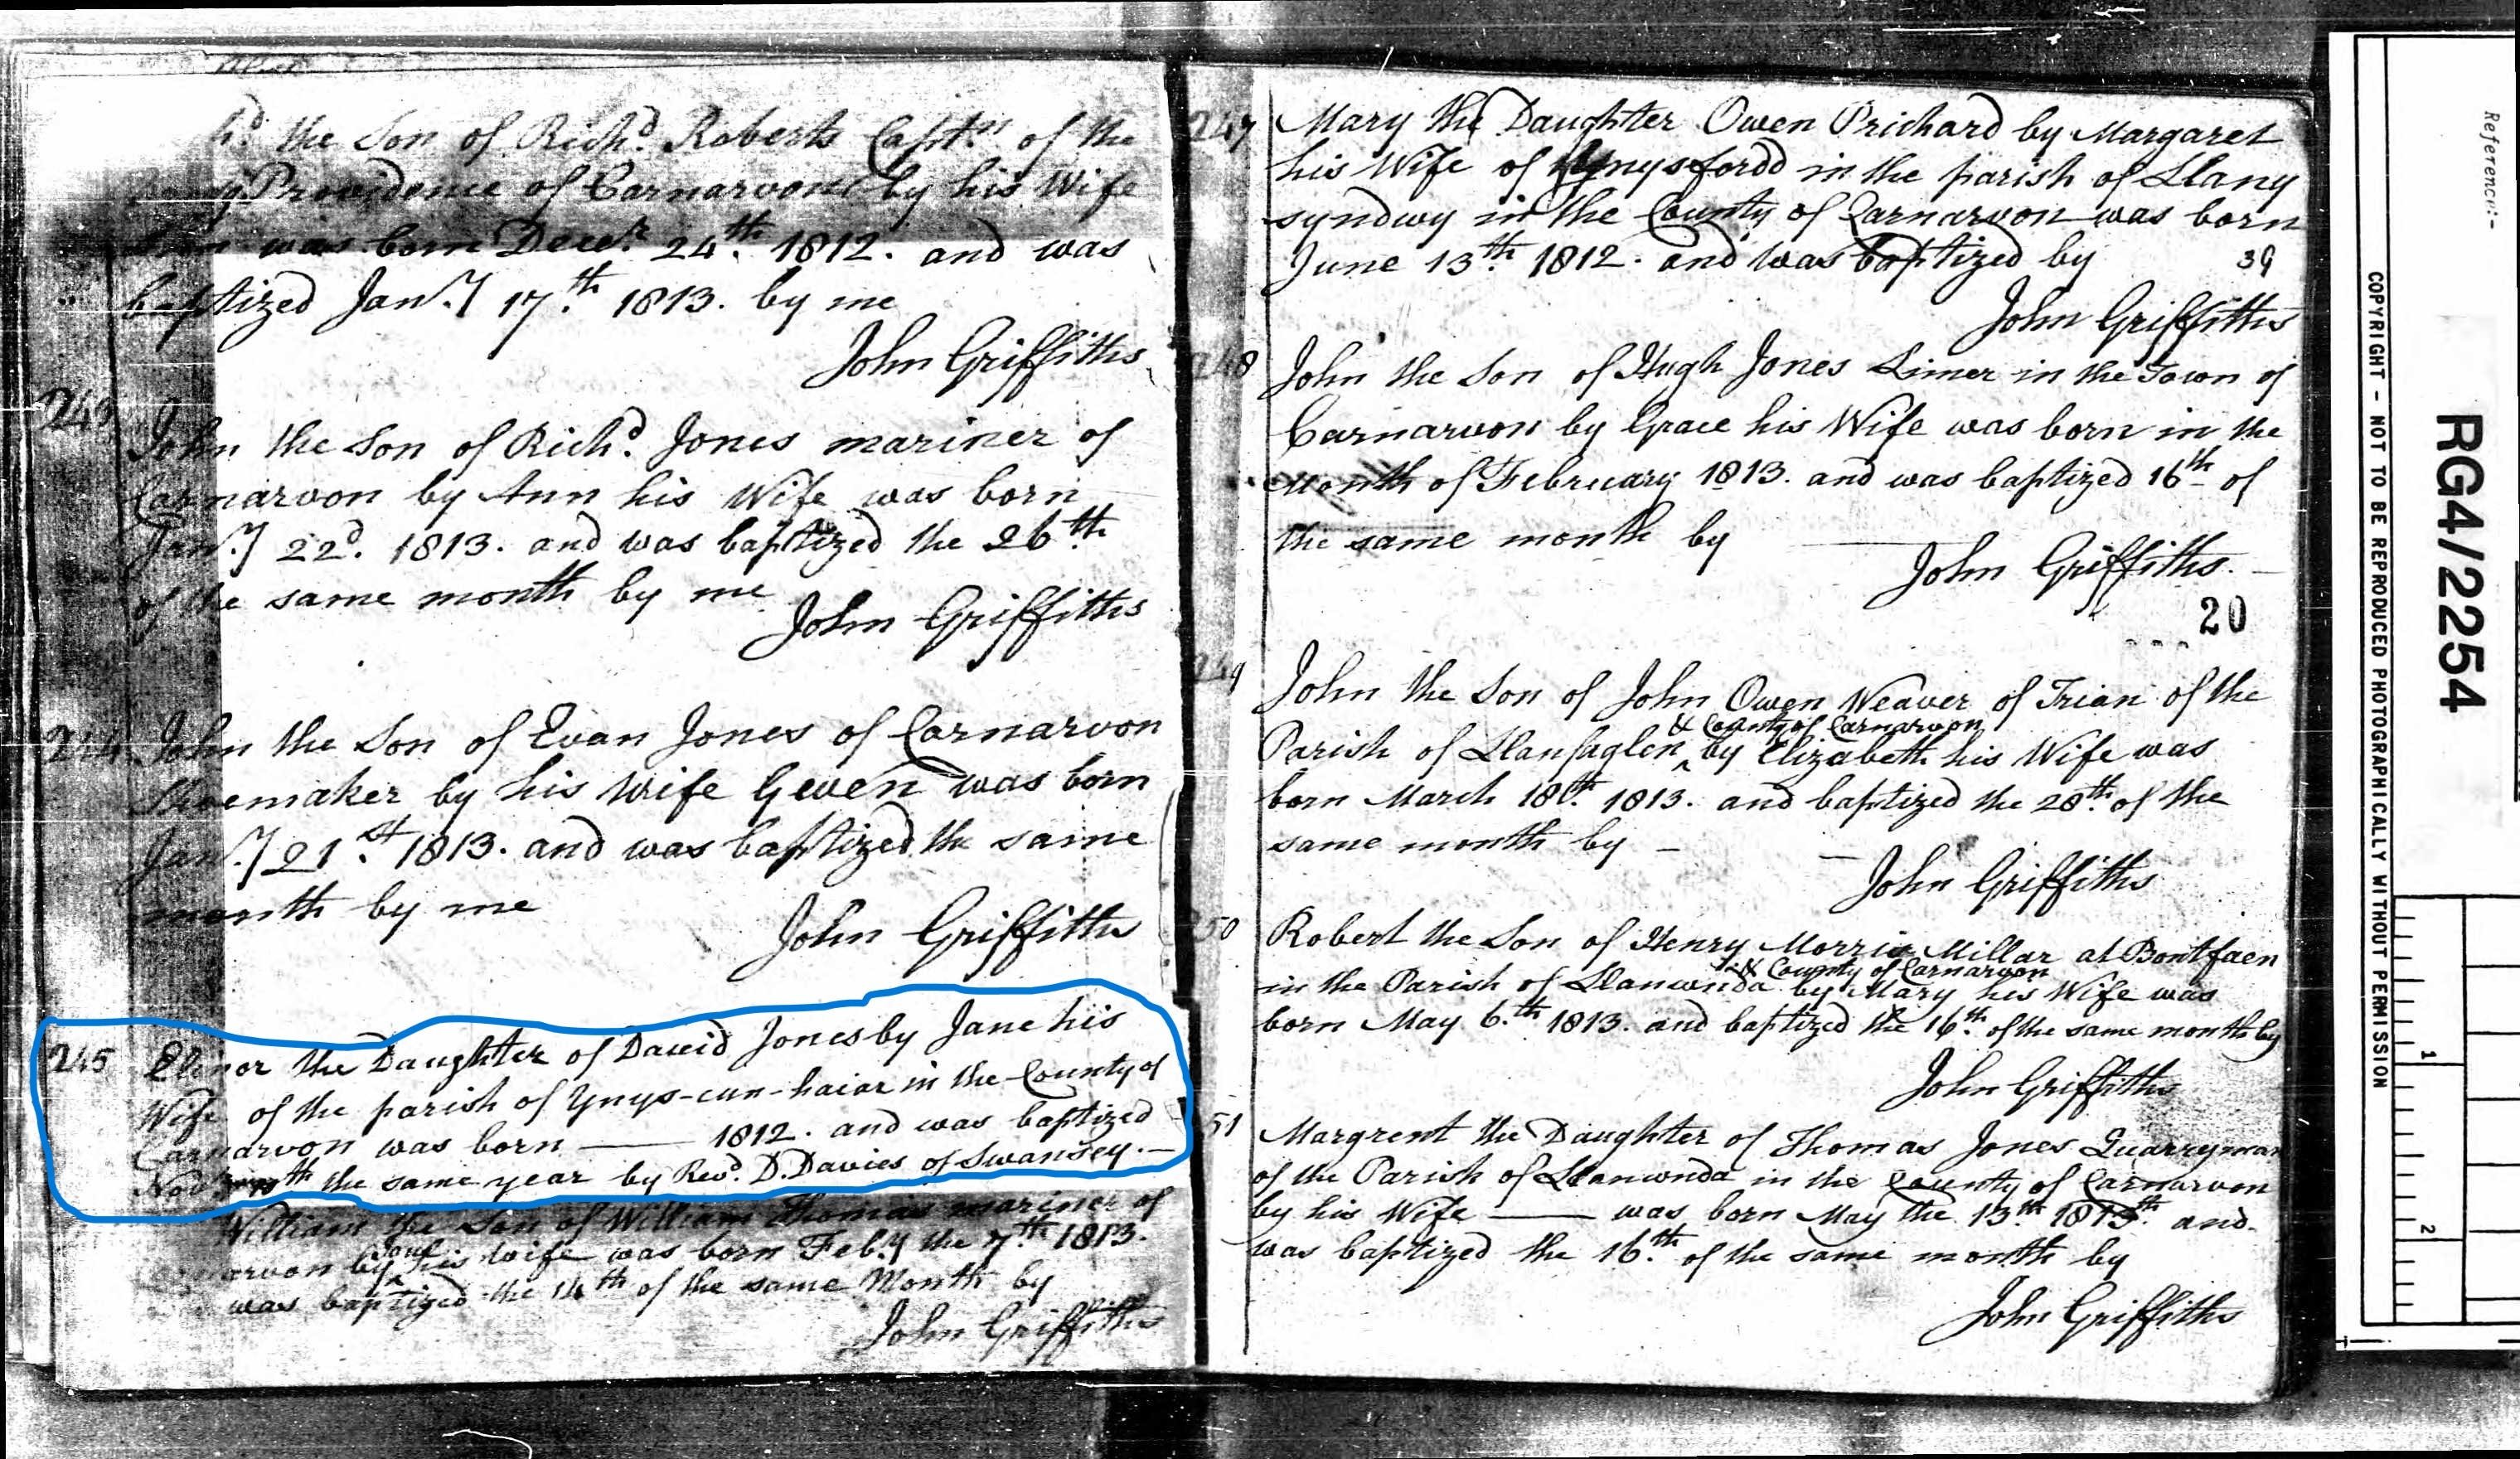 hd. the Son of Richd. Roberts Captn. of the
Providence of Carnarvon by his Wife
was born Decer. 24th. 1812. and was
baptized Jany. 17th. 1813. by me
John Griffiths
243
John the Son of Richd. Jones mariner of
Carnarvon by Ann his Wife was born
Jany. 22d. 1813. and was baptized the 26th
of the same month by me
John Griffiths
244 John the Son of Evan Jones of Carnarvon
Shoemaker by his Wife Gwen was born
Jany. 21st. 1813. and was baptized the same
month by me
John Griffiths
245 Elinor the Daughter of David Jones by Jane his
Wife of the parish of Ynys-cun-haiar in the County of
Carnarvon was born —— 1812. and was baptized
the same year by Revd. D. Davies of Swansey. —
William the Son of William Thomas mariner of
Carnarvon by Jane his Wife was born Feby the 7th. 1813.
was baptized the 14th of the same Month by
John Griffiths
247 Mary the Daughter Owen Prichard by Margaret
his Wife of Ynysfordd in the parish of Llany
syndwy in the County of Carnarvon was born
June 13th. 1812. and was baptized by 39
John Griffiths
248 John the Son of Hugh Jones Limer in the Town of
Carnarvon by Grace his Wife was born in the
Month of February 1813. and was baptized 16th of
the same month by ——
John Griffiths. —
20
249
John the Son of John Owen Weaver of Trian of the
& County of Carnarvon
Parish of Llanfaglen ^ by Elizabeth his Wife was
born March 18th. 1813. and baptized the 28th. of the
same month by — —
John Griffiths
50 Robert the Son of Henry Morris Millar at Bontfaen
& County of Carnarvon
in the Parish of Llanwnda by Mary his Wife was
born May 6.th 1813. and baptized the 16th. of the same month by
John Griffiths
51 Margrent the Daughter of Thomas Jones Quarryman
of the Parish of Llanwnda in the County of Carnarvon
by his Wife —— was born May the 13th 1813th. and
was baptized the 16.th of the same month by
John Griffiths
Reference:-
RG4/2254
COPYRIGHT - NOT TO BE REPRODUCED PHOTOGRAPHICALLY WITHOUT PERMISSION
1
2